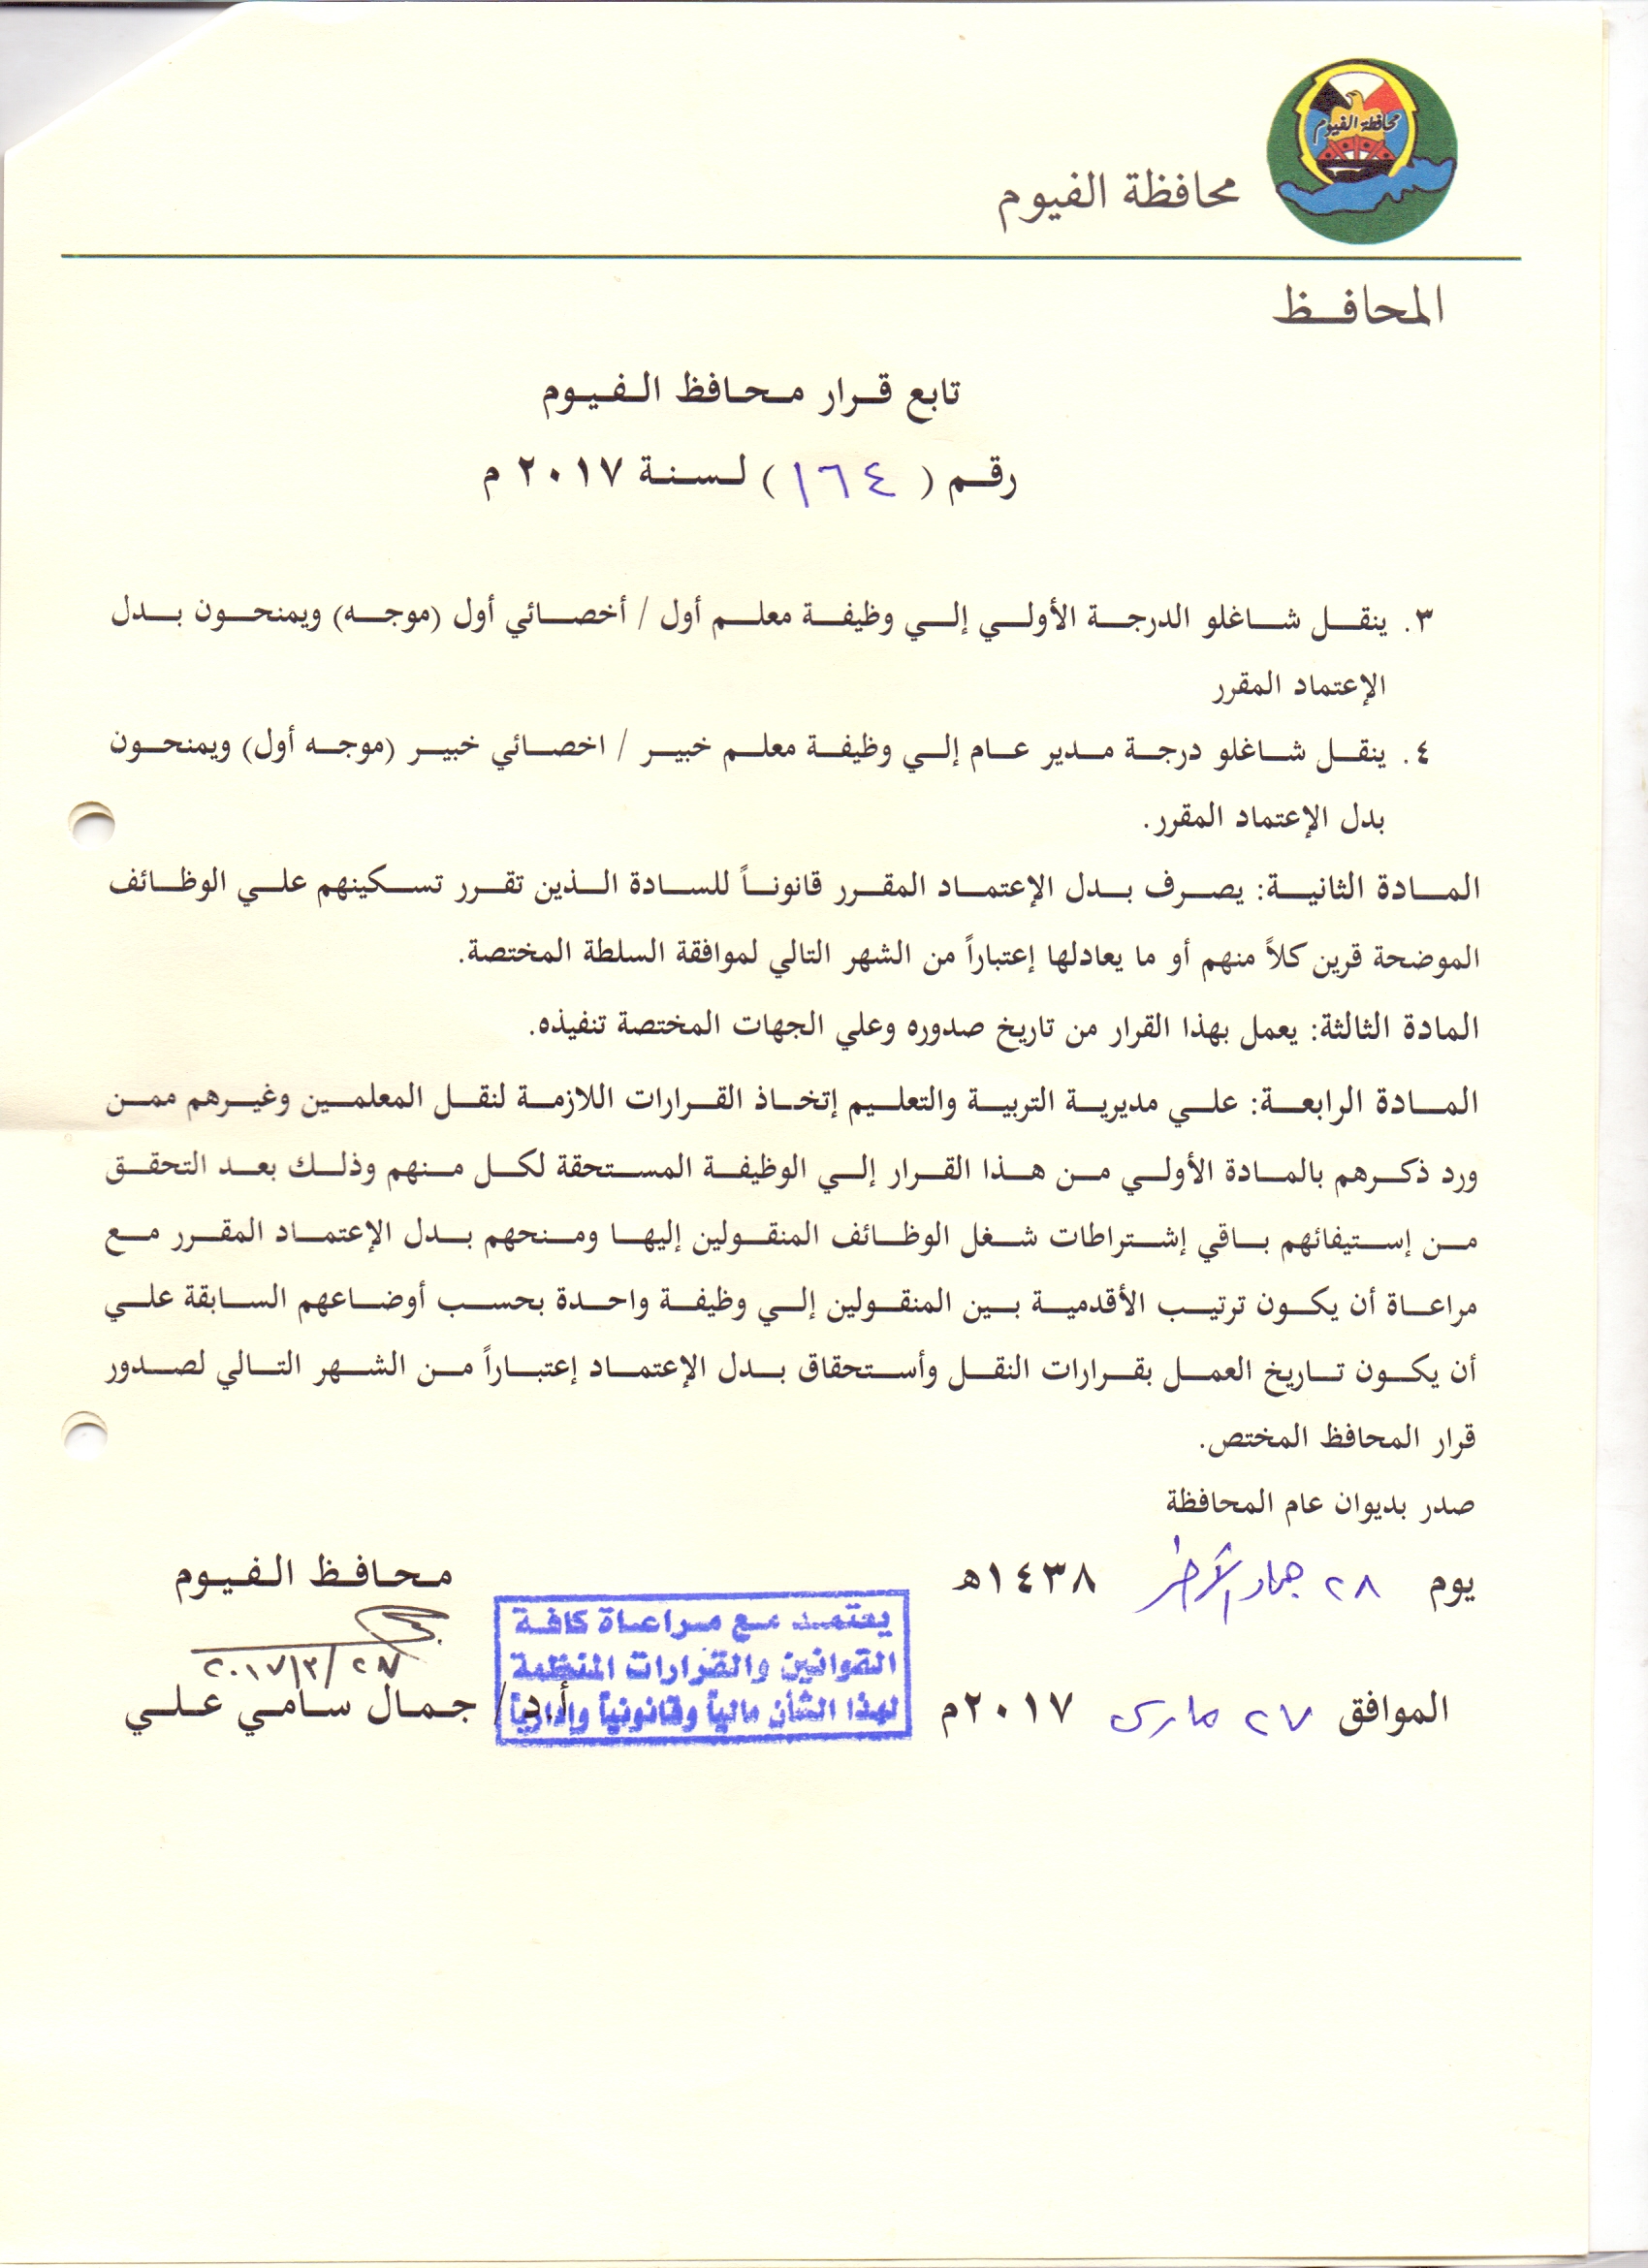 محافظة الفيوم
محافظة الفيوم
المحافـــظ
تابع قـرار محافظ الفيوم
رقم ( ١٦٤ ) لسنة ٢٠١٧ م
٣. ينقل شاغلو الدرجة الأولي إلي وظيفة معلم أول / أخصائي أول (موجه) ويمنحون بدل
الإعتماد المقرر
٤. ينقل شاغلو درجة مدير عام إلي وظيفة معلم خبير / اخصائي خبير (موجه أول) ويمنحون
بدل الإعتماد المقرر.
المادة الثانية: يصرف بدل الإعتماد المقرر قانوناً للسادة الذين تقرر تسكينهم علي الوظائف
الموضحة قرين كلاً منهم أو ما يعادلها إعتباراً من الشهر التالي لموافقة السلطة المختصة.
المادة الثالثة: يعمل بهذا القرار من تاريخ صدوره وعلي الجهات المختصة تنفيذه.
المادة الرابعة: علي مديرية التربية والتعليم إتخاذ القرارات اللازمة لنقل المعلمين وغيرهم ممن
ورد ذكرهم بالمادة الأولي من هذا القرار إلي الوظيفة المستحقة لكل منهم وذلك بعد التحقق
من إستيفائهم باقي إشتراطات شغل الوظائف المنقولين إليها ومنحهم بدل الإعتماد المقرر مع
مراعاة أن يكون ترتيب الأقدمية بين المنقولين إلي وظيفة واحدة بحسب أوضاعهم السابقة علي
أن يكون تاريخ العمل بقرارات النقل وأستحقاق بدل الإعتماد إعتباراً من الشهر التالي لصدور
قرار المحافظ المختص.
صدر بديوان عام المحافظة
يوم ٢٨ جماد الآخر ١٤٣٨هـ
الموافق ٢٧ مارس ٢٠١٧م
يعتمد مع مراعاة كافة
القوانين والقرارات المنظمة
لهذا الشأن مالياً وقانونياً وإدارياً
محافظ الفيوم
٢٠١٧/٣/٢٧
أ.د / جمال سامي علي